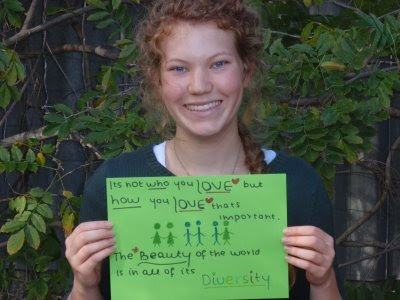 Its not who you LOVE but
how you LOVE thats
important.
The Beauty of the world
is in all of its Diversity